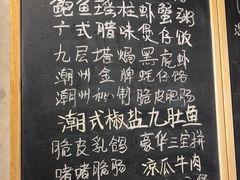 鲍鱼瑶柱虾蟹粥
广式腊味煲仔饭
九层塔焗黑虎虾
潮州金牌蚝仔烙
潮州秘制脆皮肥肠
潮式椒盐九肚鱼
脆皮乳鸽 豪华三宝拼
啫啫脆肠 凉瓜牛肉
煲